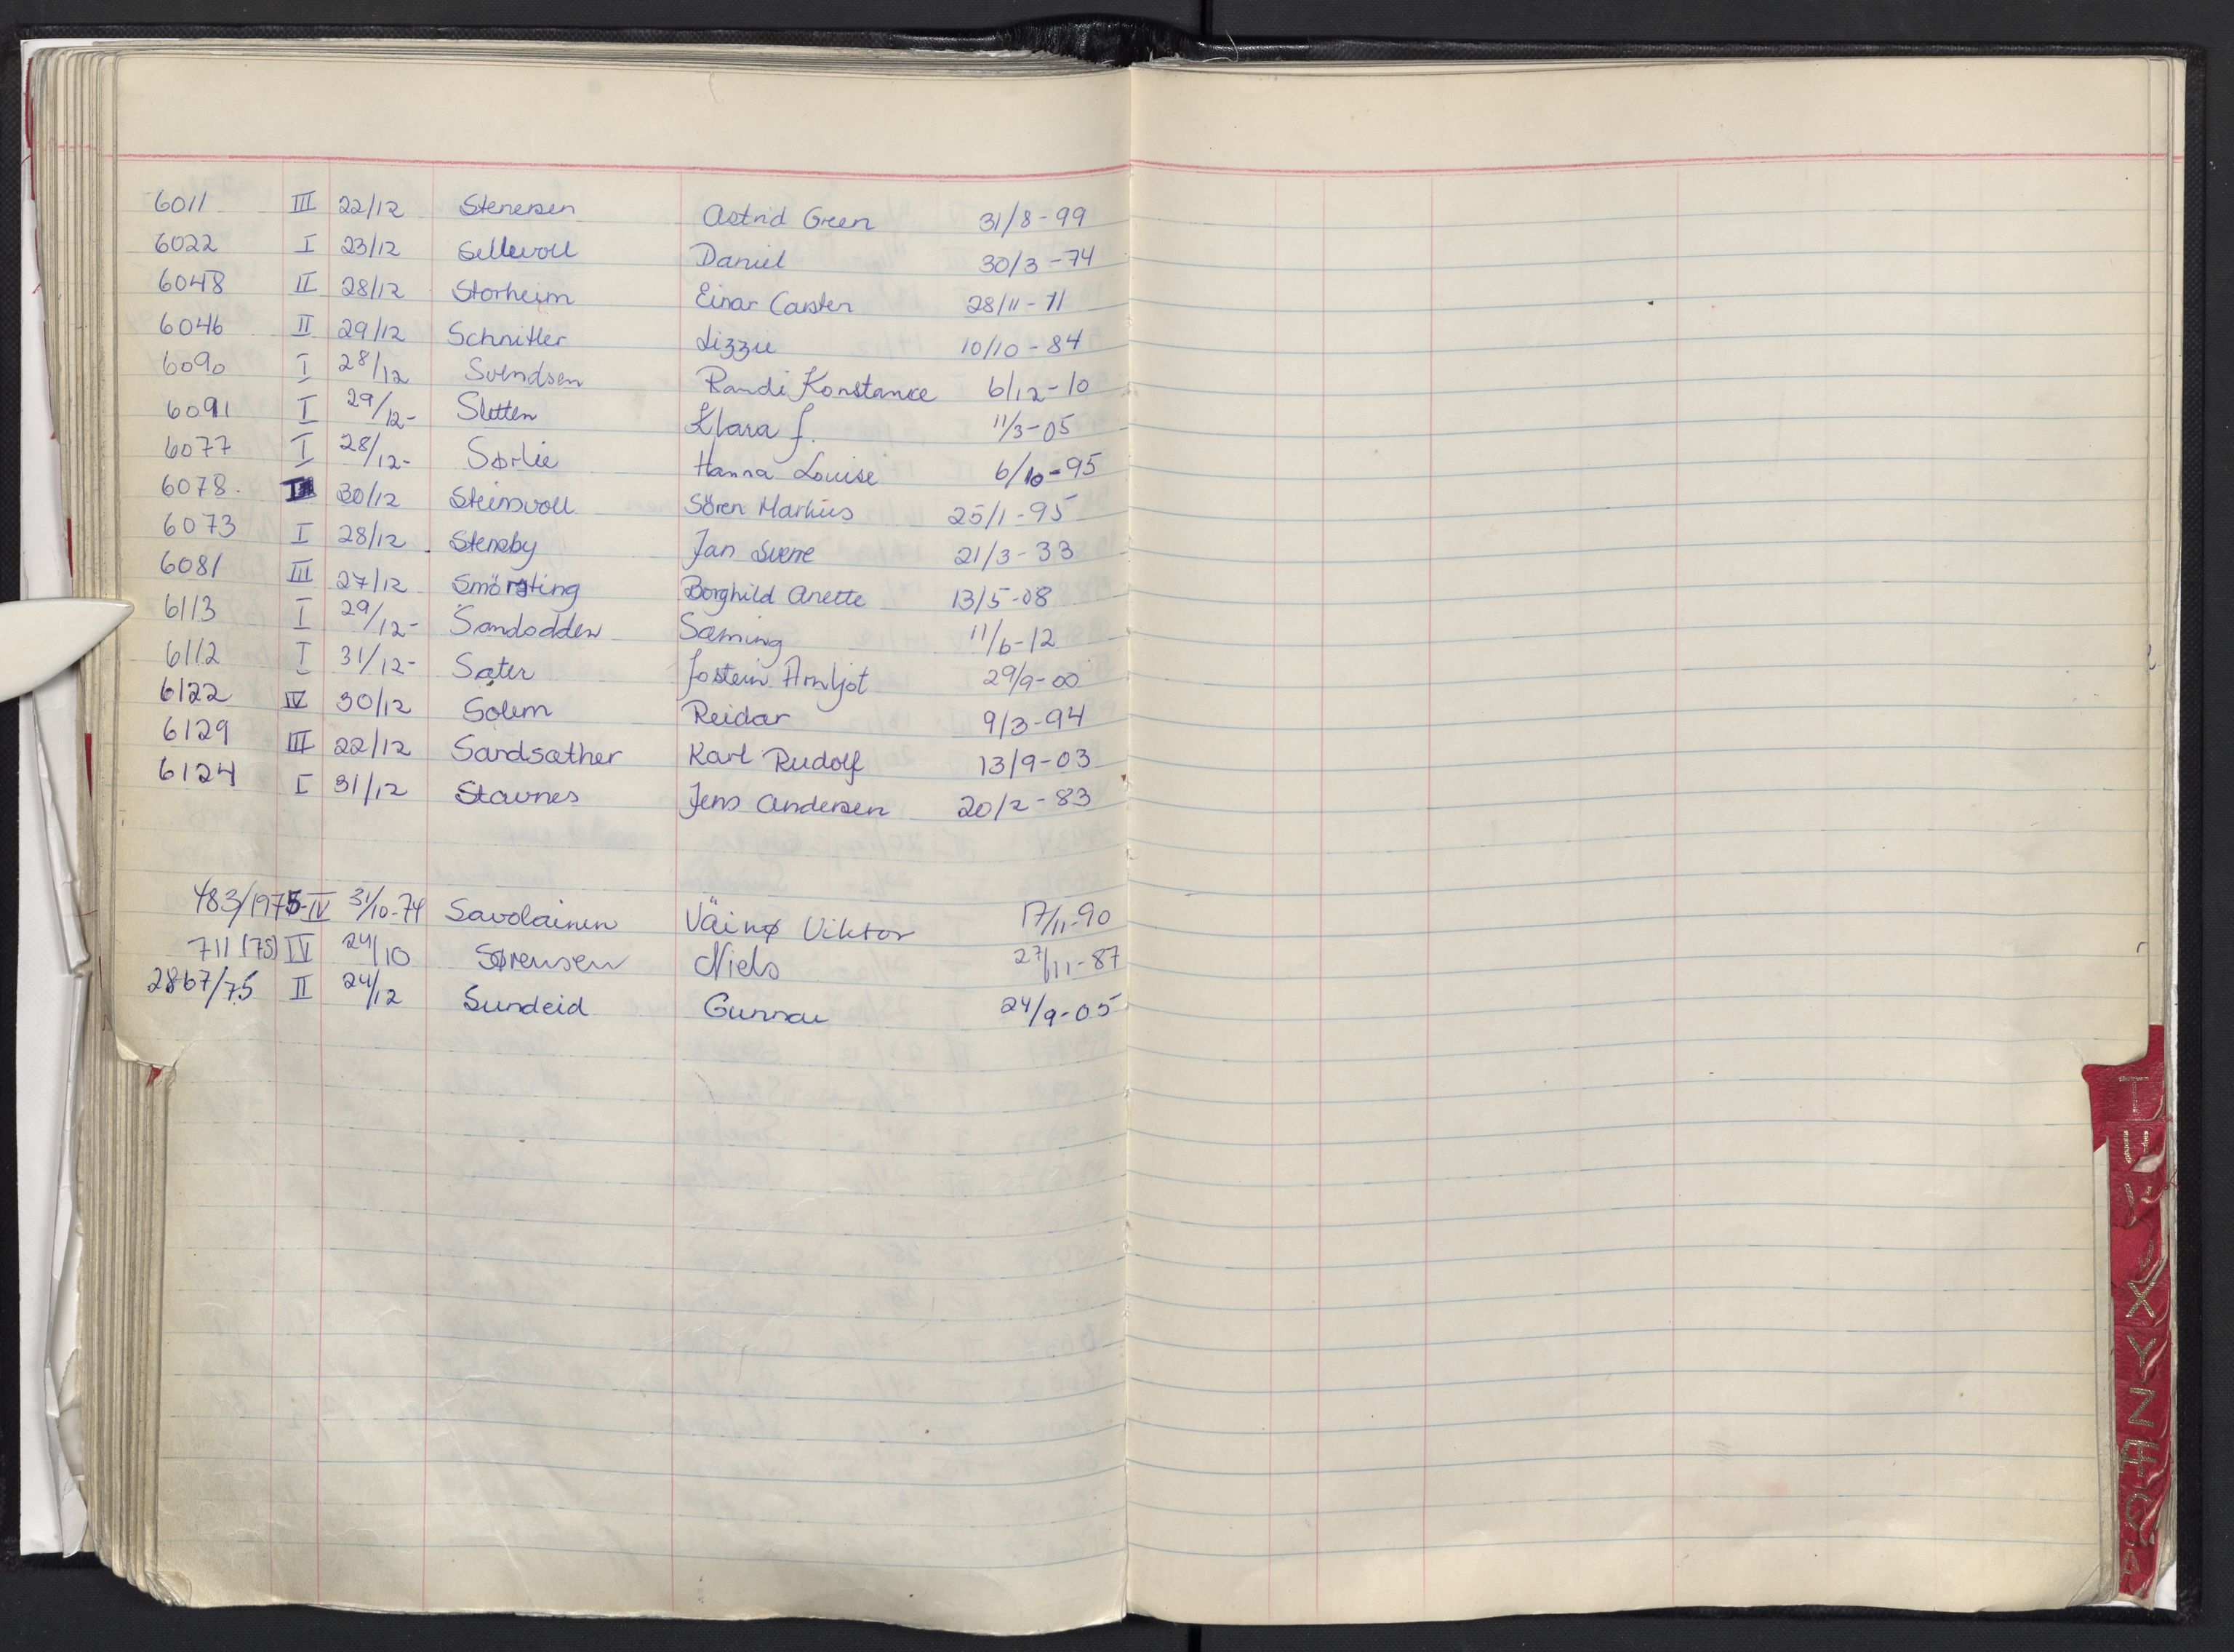 6011 III 22/12 Stenersen Astrid Green 31/8-99
6022 I 23/12 Sellevoll Daniel 30/3-74
6048 II 28/12 Storheim Einar Carsten 28/11-71
6046 II 29/12 Schnitler Lizzie 10/10-84
6090 I 28/12 Svendsen Randi Konstance 6/12-10
6091 I 29/12- Sletten Klara J. 11/3-05
6077 I 28/12- Sørlie Hanna Louise 6/10-95
6078. 30/12 Steinsvoll Sören Markus 25/1-95
6073 I 28/12 Stensby Jan Sverre 21/3-33
6081 III 27/12 Smörsting Borghild Anette 13/5-08
6113 I 29/12- Sandodden Sæming 11/6-12
6112 I 31/12- Sæter Jostein Arnljot 29/9-00
6122 IV 30/12 Solem Reidar 9/3-94
6129 III 22/12 Sandsæther Karl Rudolf 13/9-03
6124 I 31/12 Stavnes Jens Andersen 20/2-83
483/1975-IV 31/10-74 Savolainen Väinø Viktor 17/11-90
711 (75) IV 24/10 Sørensen Niels 27/11-87
2867/75 II 24/12 Sundeid Gunnar 24/9-05
T
U
V
X
Y
Z
Æ
Ø